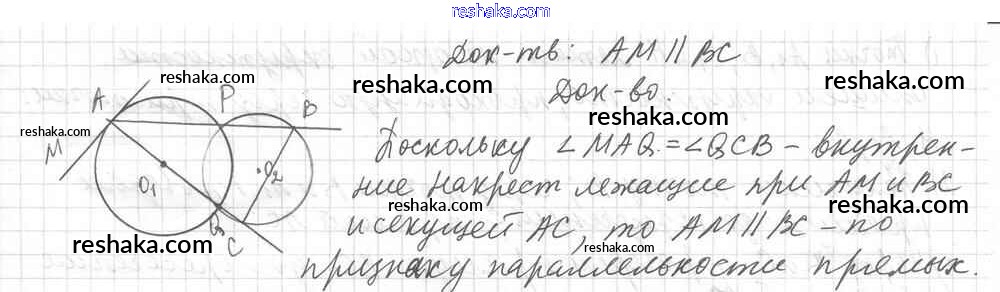 reshaka.com
Док-ть: AM || BC
reshaka.com
reshaka.com
reshaka.com
Док-во.
A
P
B
reshaka.com
M
Поскольку ∠MAQ = ∠QCB – внутрен-
O₁
O₂
ние накрест лежащие при AM и BC
reshaka.com
reshaka.com
Q
C
и секущей AC, то AM || BC – по
reshaka.com
reshaka.com
reshaka.com
признаку параллельности прямых.